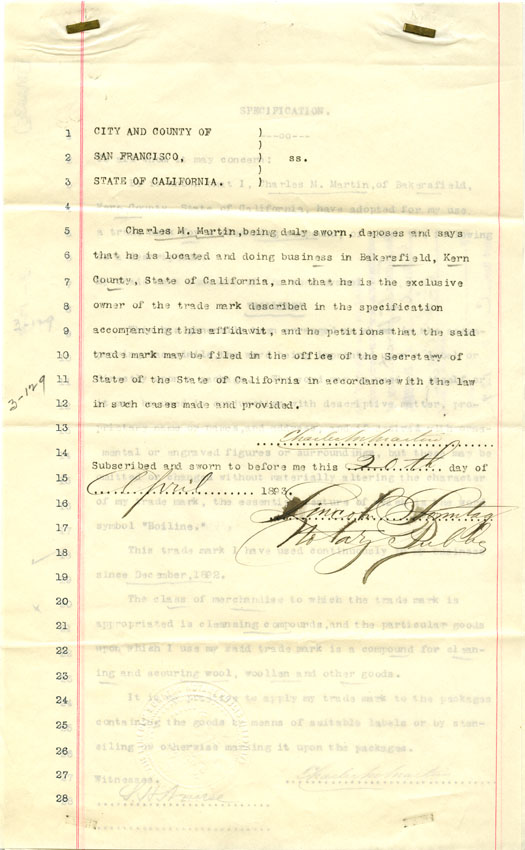 SPECIFICATION.
1 CITY AND COUNTY OF )
2 SAN FRANCISCO, ) ss.
3 STATE OF CALIFORNIA. )
4
5 Charles M. Martin, being duly sworn, deposes and says
6 that he is located and doing business in Bakersfield, Kern
7 County, State of California, and that he is the exclusive
8 owner of the trade mark described in the specification
9 accompanying this affidavit, and he petitions that the said
10 trade mark may be filed in the office of the Secretary of
11 State of the State of California in accordance with the law
12 in such cases made and provided.
3-129
3-129
13 Charles M. Martin
14 Subscribed and sworn to before me this 20th day of
15 April 1893.
16 Lincoln
17 Notary Public
symbol "Boiline."
18 This trade mark I have used continuously
19 since December, 1892.
20 The class of merchandise to which the trade mark is
21 appropriated is cleansing compounds, and the particular goods
22 upon which I use my said trade mark is a compound for clean-
23 ing and scouring wool, woollen and other goods.
24 It is my practice to apply my trade mark to the packages
25 containing the goods by means of suitable labels or by sten-
26 ciling or otherwise marking it upon the packages.
27 Witnesses. Charles M. Martin
28